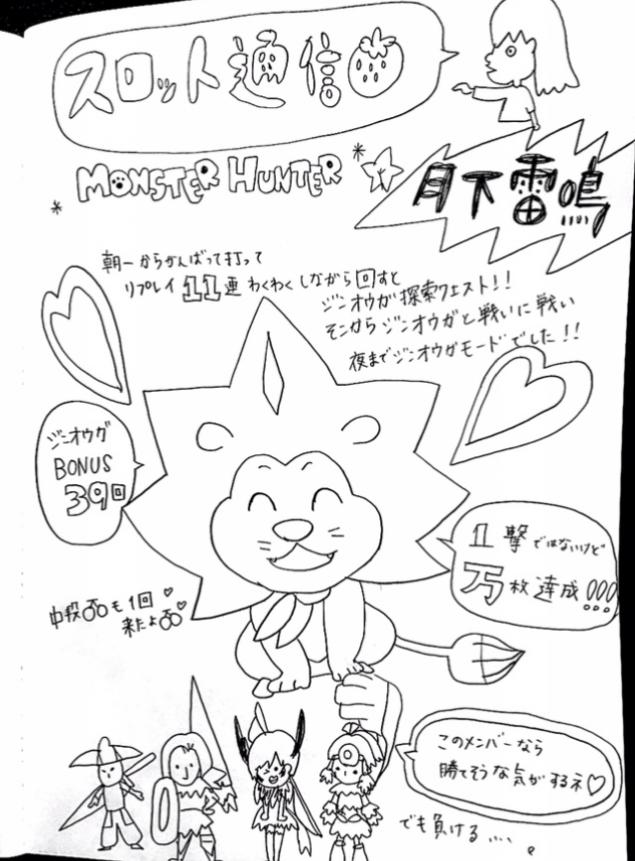 スロット通信
MONSTER HUNTER
月下雷鳴
朝一からがんばって打って
リプレイ11連わくわくしながら回すと
ジンオウガ探索クエスト!!
そこからジンオウガと戦いに戦い
夜までジンオウガモードでした!!
ジンオウガ
BONUS
39回
1撃ではないけど
万枚達成!!!
中段🍒も1回♡
来たよ🍒♡
このメンバーなら
勝てそうな気がするネ♡
でも負ける....。